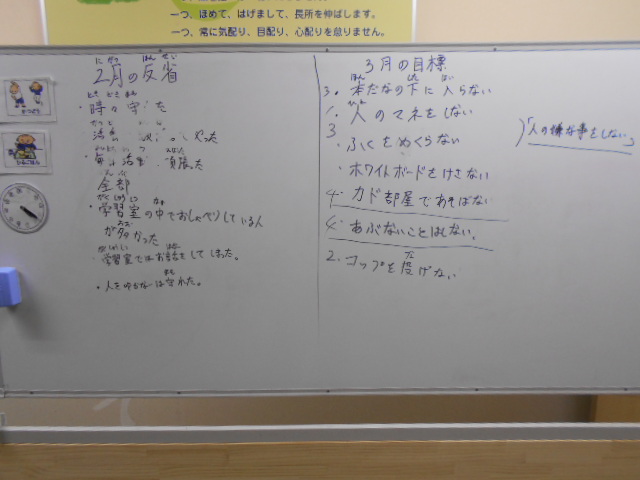 一つ、ほめて、はげまして、長所を伸ばします。
一つ、常に気配り、目配り、心配りを怠りません。
2月の反省
・時々守った
・毎 活動 頑張った
全部
・学習室の中でおしゃべりしている人
が多かった
・学習室ではお話をしてしまった。
・人を は守れた。
3月の目標
3. 本だなの下に入らない
1. 人のマネをしない
3 ふくをめくらない
・ホワイトボードをけさない
4. カド部屋であそばない
4. あぶないことはしない。
2. コップを投げない
「人の嫌な事をしない」